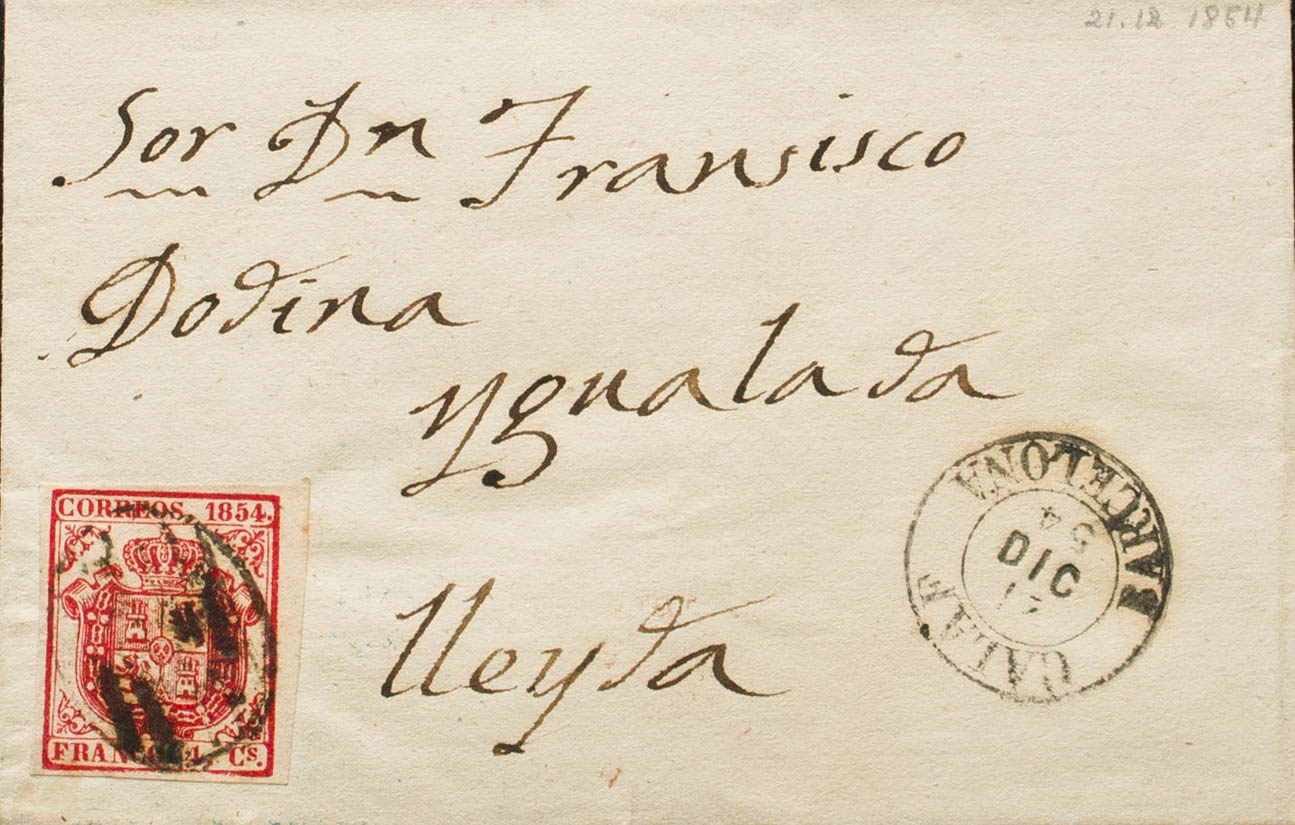 21.12 1854
Sor Dn Fransisco
Dodina
Ygualada
lleyda
CORREOS. 1854.
FRANCO 4 Cs.
BARCELONA
54
DIC